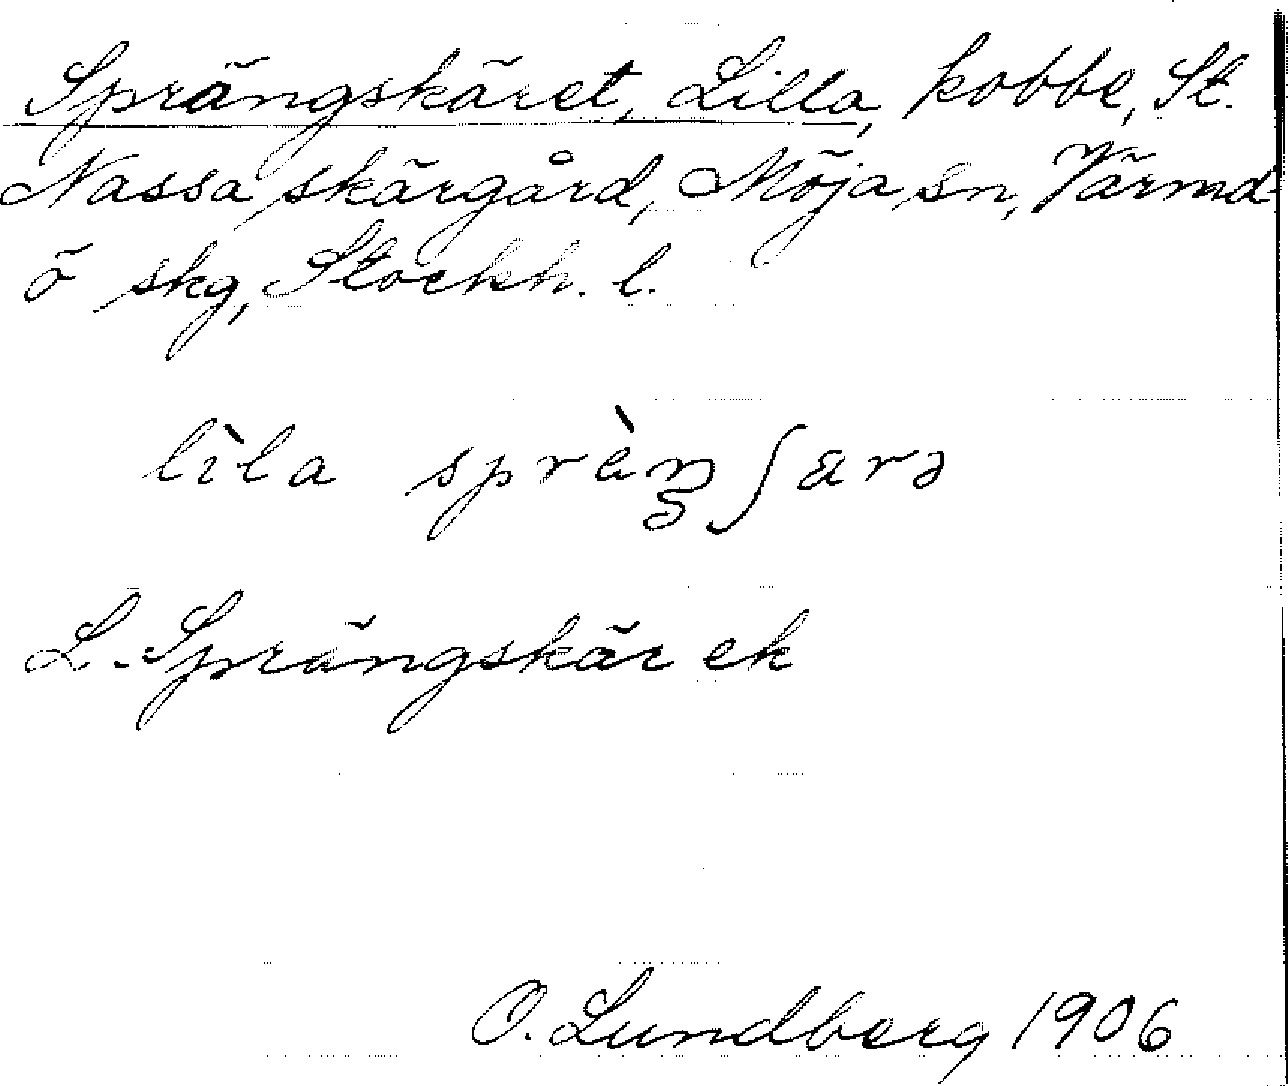 Sprängskäret, Lilla, kobbe, St.
Nassa skärgård, Möja sn, Värmd-
ö skg, Stockh. l.
lìla sprèŋʃärə
L. Sprängskär ek
O. Lundberg 1906